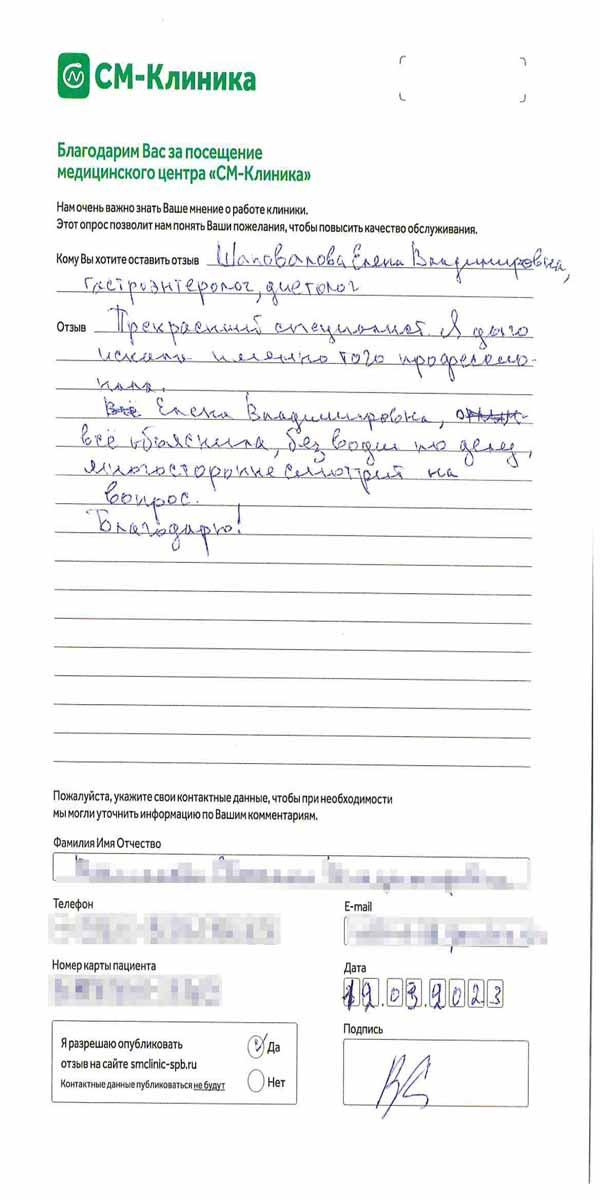 СМ-Клиника
Благодарим Вас за посещение
медицинского центра «СМ-Клиника»
Нам очень важно знать Ваше мнение о работе клиники.
Этот опрос позволит нам понять Ваши пожелания, чтобы повысить качество обслуживания.
Кому Вы хотите оставить отзыв Шаповалова Елена Владимировна,
гастроэнтеролог, диетолог
Отзыв Прекрасный специалист. Я долго
искала именно того профессио-
нала.
Всё Елена Владимировна,
всё объяснила, без воды по делу,
многосторонне смотрит на
вопрос.
Благодарю!
Пожалуйста, укажите свои контактные данные, чтобы при необходимости
мы могли уточнить информацию по Вашим комментариям.
Фамилия Имя Отчество
Телефон
E-mail
Номер карты пациента
Дата
12.03.2023
Я разрешаю опубликовать
отзыв на сайте smclinic-spb.ru
Контактные данные публиковаться не будут
Да
Нет
Подпись